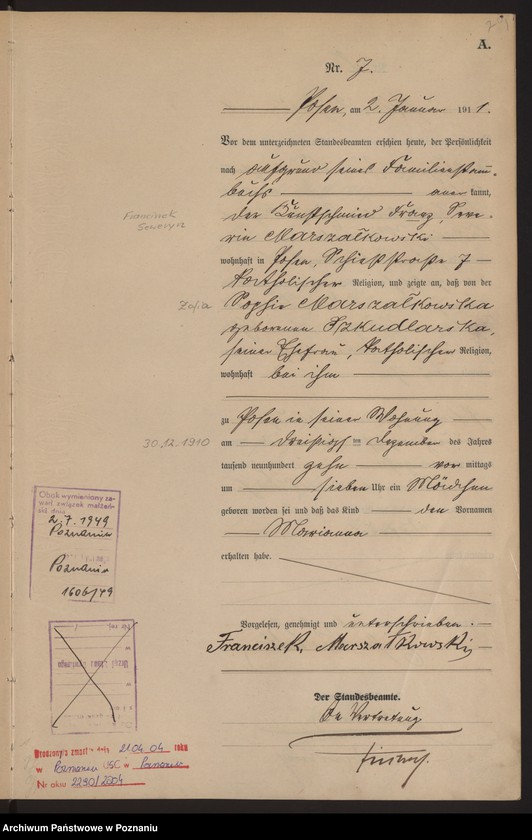 A.
Nr. 7.
Posen, am 2. Januar 1911.
Vor dem unterzeichneten Standesbeamten erschien heute, der Persönlichkeit
nach aufgrund seines Familienstamm-
buchs anerkannt,
der Kunstschmied Franz, Seve-
Franciszek
Seweryn
rin Marszałkowski
wohnhaft in Posen, Schießstraße 7
katholischer Religion, und zeigte an, daß von der
Zofia
Sophie Marszałkowska
geborenen Szkudlarska,
seiner Ehefrau, katholischer Religion,
wohnhaft bei ihm
zu Posen in seiner Wohnung
30.12.1910
am dreißigsten Dezember des Jahres
tausend neunhundert zehn vormittags
um sieben Uhr ein Mädchen
geboren worden sei und daß das Kind den Vornamen
Marianna
erhalten habe.
Obok wymieniony za-
warł związek małżeń-
ski dnia
2.7.1949
Poznaniu
Poznaniu
1606/49
Vorgelesen, genehmigt und unterschrieben.
Franciszek Marszałkowski
Der Standesbeamte.
In Vertretung
dnia 21.04.04 roku
w Poznaniu USC w Poznaniu
Nr aktu 2230/2004
Archiwum Państwowe w Poznaniu